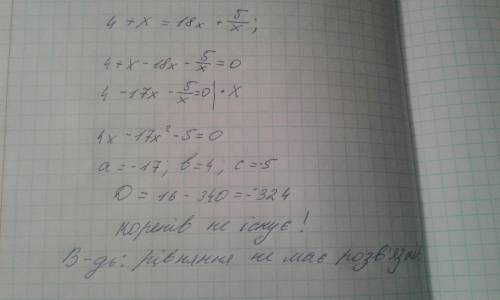 4 + x = 18x + 5/x ;
4 + x - 18x - 5/x = 0
4 - 17x - 5/x = 0 | · x
4x - 17x² - 5 = 0
a = -17; b = 4, c = -5
D = 16 - 340 = -324
коренів не існує!
В-дь: рівняння не має розв'язків